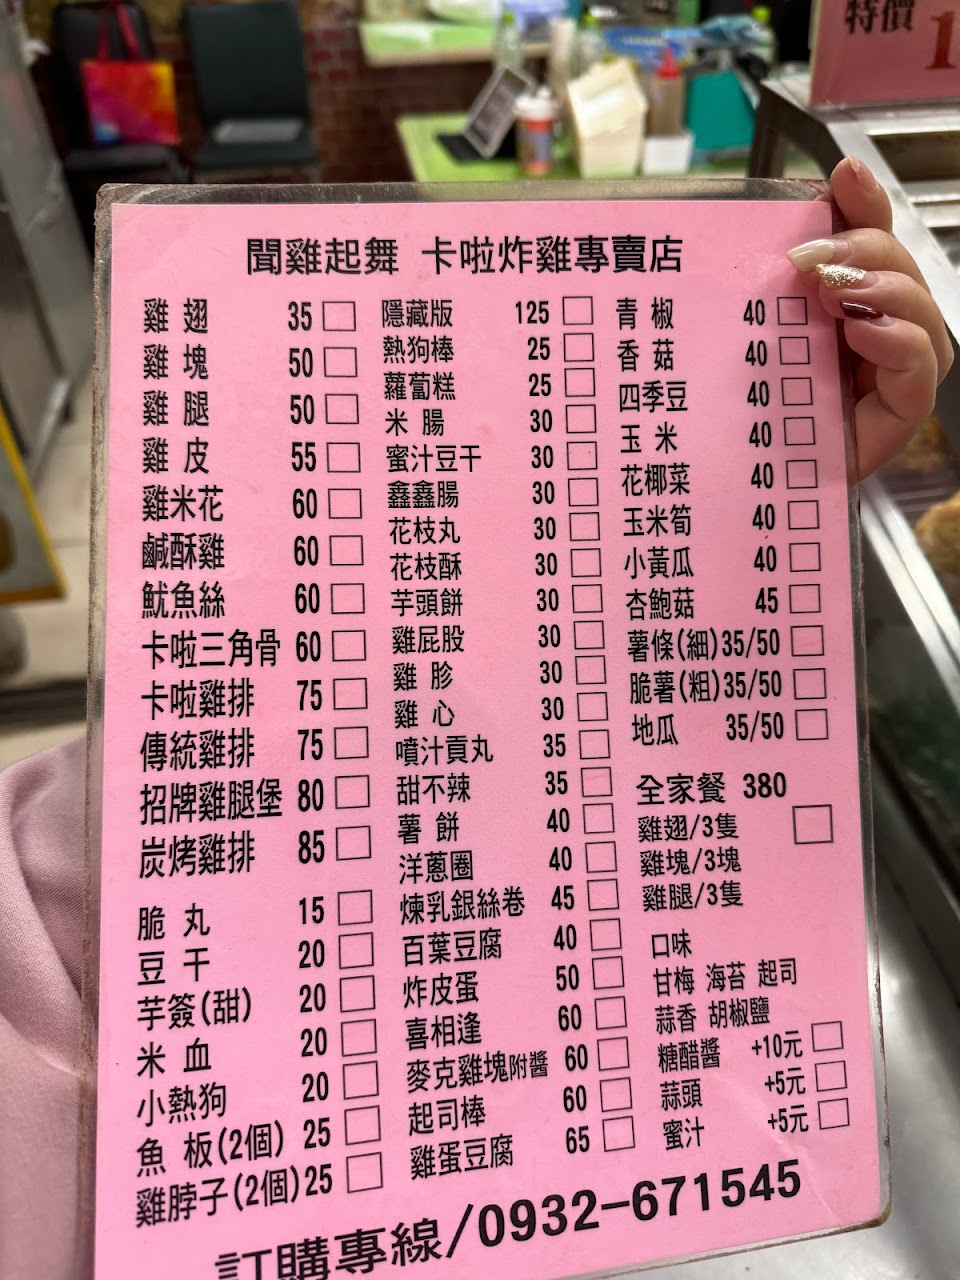 特價 1
聞雞起舞 卡啦炸雞專賣店
雞翅 35
雞塊 50
雞腿 50
雞皮 55
雞米花 60
鹹酥雞 60
魷魚絲 60
卡啦三角骨 60
卡啦雞排 75
傳統雞排 75
招牌雞腿堡 80
炭烤雞排 85
脆丸 15
豆干 20
芋簽(甜) 20
米血 20
小熱狗 20
魚板(2個) 25
雞脖子(2個) 25
隱藏版 125
熱狗棒 25
蘿蔔糕 25
米腸 30
蜜汁豆干 30
鑫鑫腸 30
花枝丸 30
花枝酥 30
芋頭餅 30
雞屁股 30
雞胗 30
雞心 30
噴汁貢丸 35
甜不辣 35
薯餅 40
洋蔥圈 40
煉乳銀絲卷 45
百葉豆腐 40
炸皮蛋 50
喜相逢 60
麥克雞塊附醬 60
起司棒 60
雞蛋豆腐 65
青椒 40
香菇 40
四季豆 40
玉米 40
花椰菜 40
玉米筍 40
小黃瓜 40
杏鮑菇 45
薯條(細) 35/50
脆薯(粗) 35/50
地瓜 35/50
全家餐 380
雞翅/3隻
雞塊/3塊
雞腿/3隻
口味
甘梅 海苔 起司
蒜香 胡椒鹽
糖醋醬 +10元
蒜頭 +5元
蜜汁 +5元
訂購專線/0932-671545